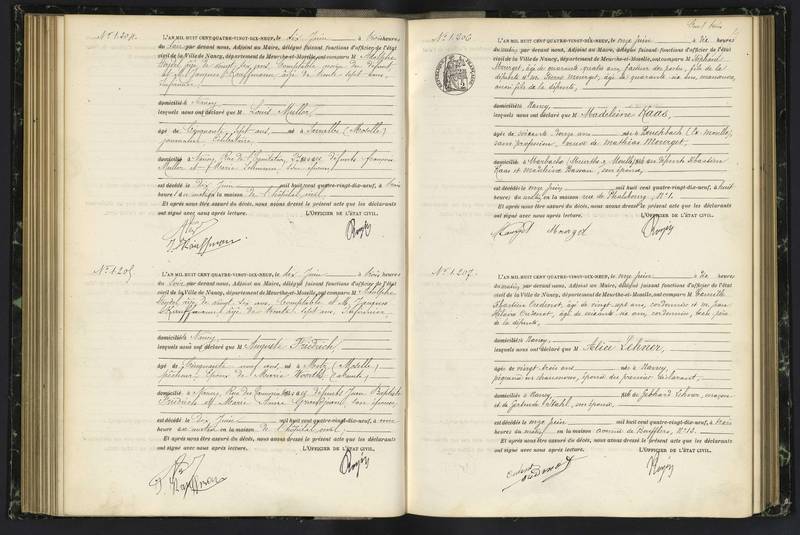 N° 1.204.
L'AN MIL HUIT CENT QUATRE-VINGT-DIX-NEUF, le dix Juin à trois heures
du Soir par devant nous, Adjoint au Maire, délégué faisant fonctions d'officier de l'état
civil de la Ville de Nancy, département de Meurthe-et-Moselle, ont comparu M Adolphe
âgé de vingt six ans, Comptable
et M. Jacques Kauffmann âgé de trente sept ans,
domiciliés Nancy
lesquels nous ont déclaré que M Louis Muller,
âgé de Cinquante sept ans né à (Moselle)
journalier Célibataire
domicilié à Nancy, Rue de fils de défunts François
Muller et Marie son épouse
est décédé le Dix Juin mil huit cent quatre-vingt-dix-neuf, à trois
heures du matin en la maison de l'hôpital civil,
Et après nous être assuré du décès, nous avons dressé le présent acte que les déclarants
ont signé avec nous après lecture. L'OFFICIER DE L'ÉTAT CIVIL.
J. Kauffman
N° 1.205
L'AN MIL HUIT CENT QUATRE-VINGT-DIX-NEUF, le dix Juin à trois heures
du Soir par devant nous, Adjoint au Maire, délégué faisant fonctions d'officier de l'état
civil de la Ville de Nancy, département de Meurthe-et-Moselle, ont comparu M Adolphe
âgé de vingt six ans, Comptable et M. Jacques
Kauffmann âgé de trente sept ans,
domiciliés Nancy
lesquels nous ont déclaré que M Auguste Friedrich,
âgé de Cinquante neuf ans né à Metz (Moselle)
époux de Marie
domicilié à Nancy, Rue fils de défunts Jean Baptiste
Friedrich et Marie Anne son épouse,
est décédé le Dix Juin mil huit cent quatre-vingt-dix-neuf, à onze
heures du matin en la maison de l'hôpital civil,
Et après nous être assuré du décès, nous avons dressé le présent acte que les déclarants
ont signé avec nous après lecture. L'OFFICIER DE L'ÉTAT CIVIL.
J. Kauffman
N° 1.206
L'AN MIL HUIT CENT QUATRE-VINGT-DIX-NEUF, le onze juin à dix heures
du matin, par devant nous, Adjoint au Maire, délégué faisant fonctions d'officier de l'état
civil de la Ville de Nancy, département de Meurthe-et-Moselle, ont comparu M Stéphane
Mourget, âgé de quarante quatre ans, facteur des postes, fils de la
défunte et M. Pierre Mourget, âgé de quarante six ans, manœuvre,
aussi fils de la défunte,
domiciliés Nancy,
lesquels nous ont déclaré que M Madeleine Kaas,
âgée de soixante onze ans née à (la Moselle),
sans profession, veuve de Mathias Mourget,
domiciliée à Marbache (Meurthe & Moselle), fille de défunts Sébastien
Kaas et Madeleine son épouse,
est décédée le onze juin mil huit cent quatre-vingt-dix-neuf, à huit
heures du matin en la maison rue de Phalsbourg, N° 1.
Et après nous être assuré du décès, nous avons dressé le présent acte que les déclarants
ont signé avec nous après lecture. L'OFFICIER DE L'ÉTAT CIVIL.
Mourget Mourget
N° 1.207.
L'AN MIL HUIT CENT QUATRE-VINGT-DIX-NEUF, le onze juin à dix heures
du matin, par devant nous, Adjoint au Maire, délégué faisant fonctions d'officier de l'état
civil de la Ville de Nancy, département de Meurthe-et-Moselle, ont comparu M Camille
Sébastien Oudenot, âgé de vingt sept ans, cordonnier et M. Jean
Oudenot, âgé de soixante six ans, cordonnier, beau père
de la défunte,
domiciliés Nancy,
lesquels nous ont déclaré que M Alice Lehner,
âgée de vingt trois ans née à Nancy,
piqueuse en chaussures, épouse du premier déclarant,
domiciliée à Nancy, fille de Gebhard Lehner, maçon
et de Gertrude Stahl, son épouse,
est décédée le onze juin mil huit cent quatre-vingt-dix-neuf, à trois
heures du matin en la maison avenue de Boufflers, N° 13.
Et après nous être assuré du décès, nous avons dressé le présent acte que les déclarants
ont signé avec nous après lecture. L'OFFICIER DE L'ÉTAT CIVIL.
Oudenot